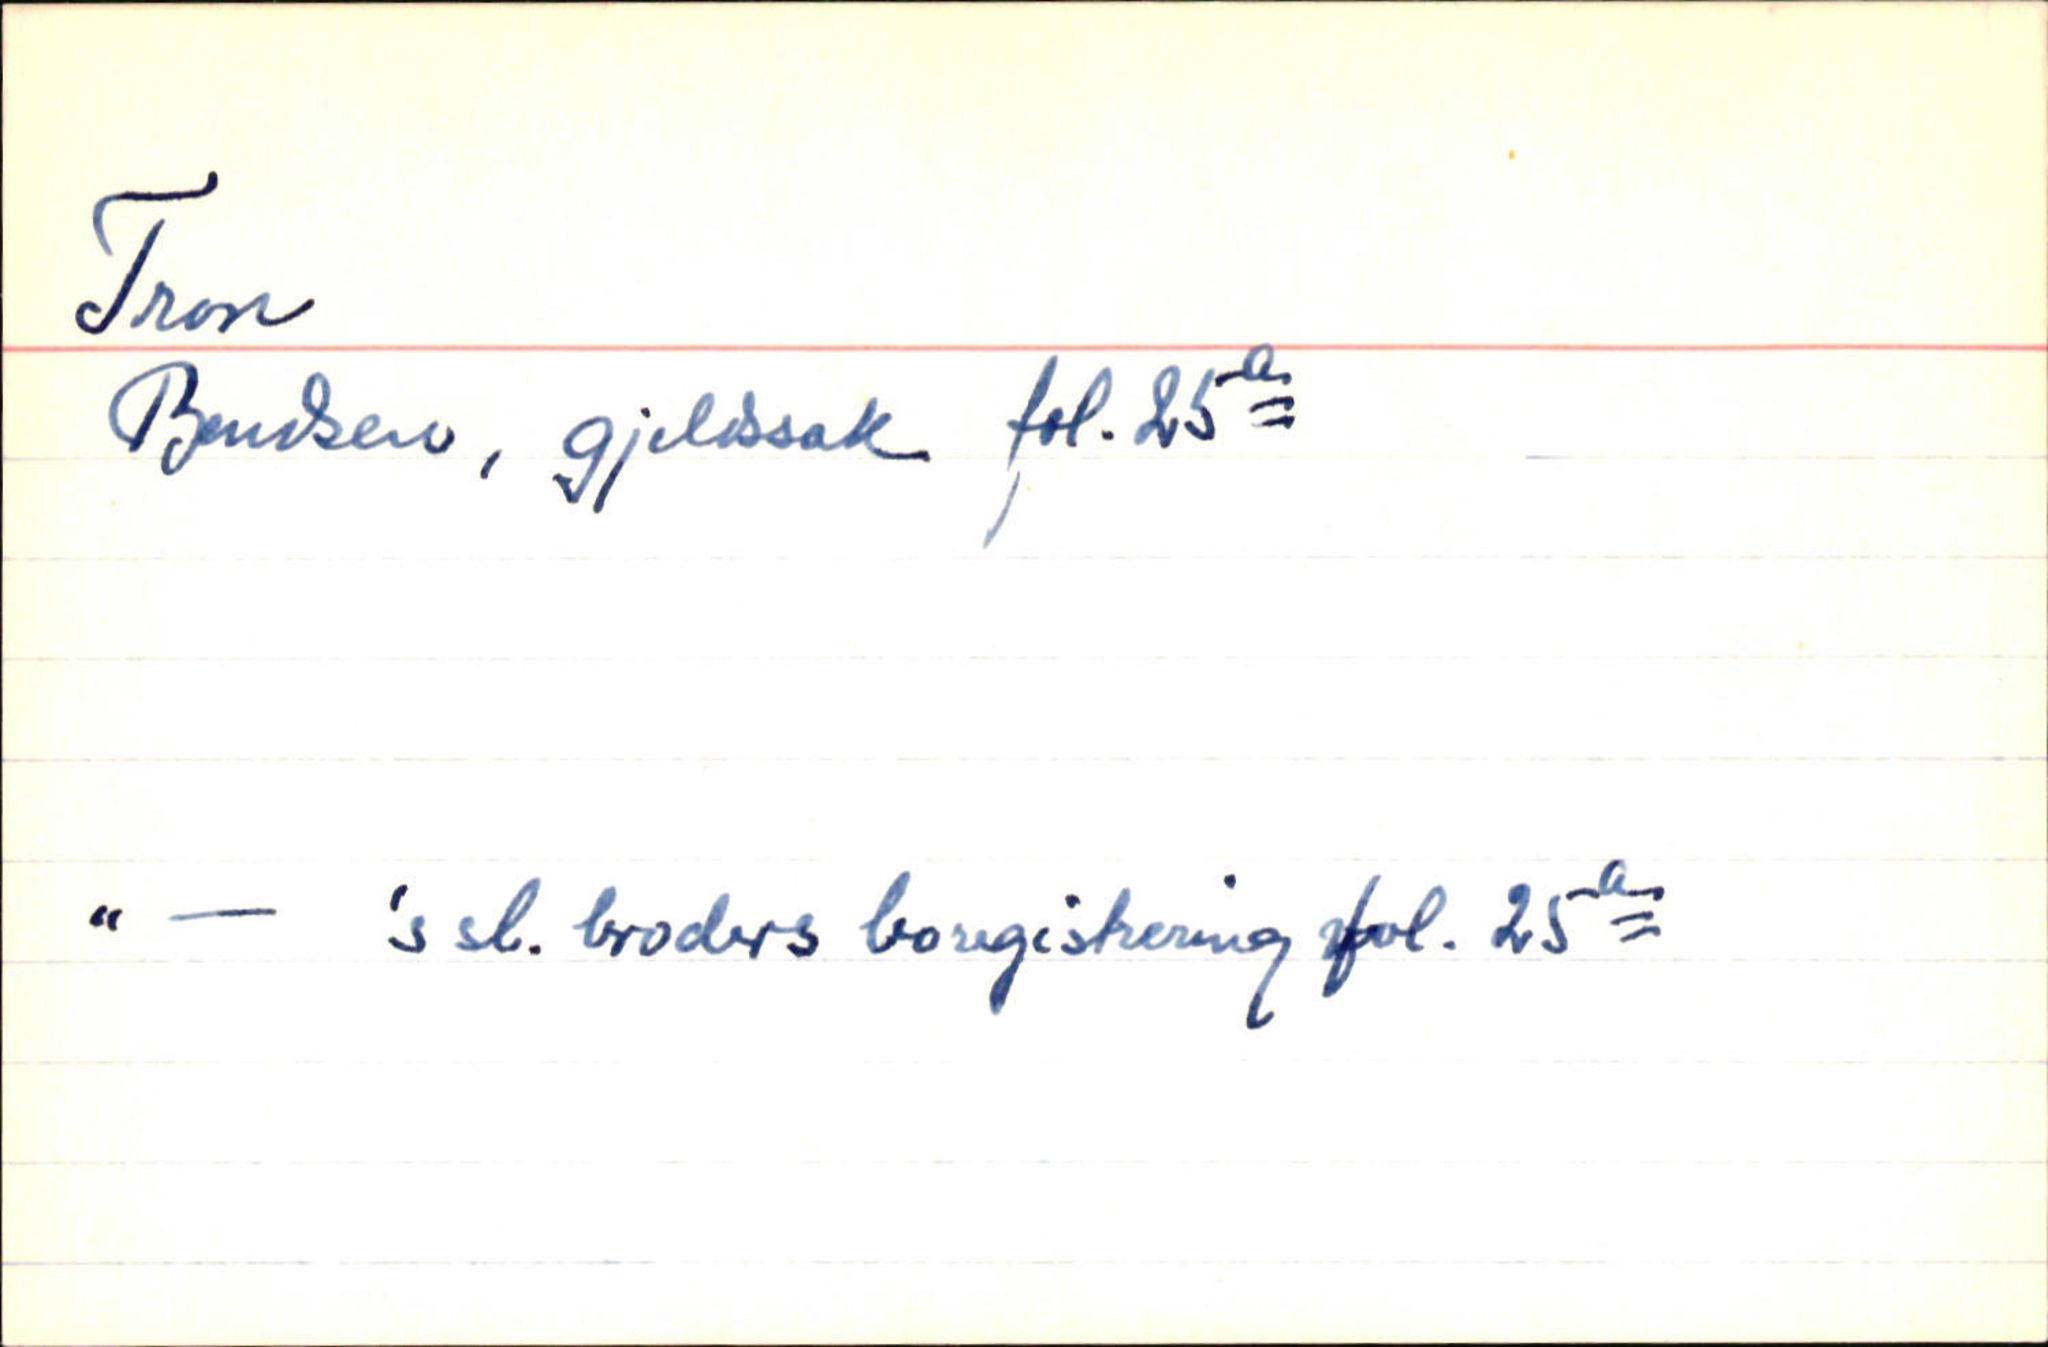 Tron
Bendsen, gjeldssak fol. 25a
" — 's sl. broders boregistrering fol. 25a